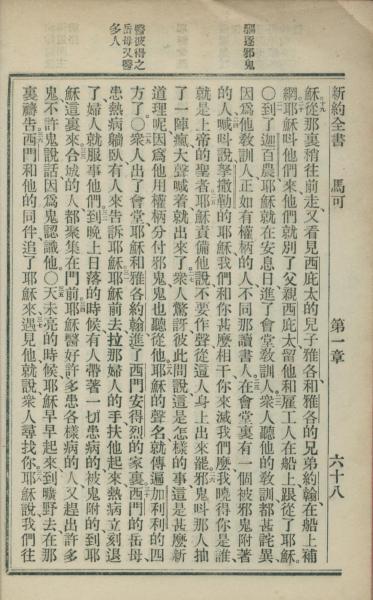 新約全書　馬可　第一章　六十八
驅逐邪鬼
醫彼得之
岳母又醫
多人
穌從那裏稍往前走又看見西庇太的兒子雅各和雅各的兄弟約翰在船上補
網耶穌呌他們來他們就別了父親西庇太留他和雇工人在船上跟從了耶穌
○到了迦百農耶穌就在安息日進了會堂敎訓人衆人聽他的敎訓都甚詫異
因爲他敎訓人正如有權柄的人不同那讀書人在會堂裏有一個被邪鬼附著
的人喊呌說拏撒勒的耶穌我們和你甚麼相干你來滅我們麼我曉得你是誰
就是上帝的聖者耶穌責備他說不要作聲從這人身上出來罷邪鬼呌那人抽
了一陣瘋大聲喊着就出來了衆人驚訝彼此問說這是怎樣的事這是甚麼新
道理呢因爲他用權柄分付邪鬼鬼也聽從他耶穌的聲名就傳遍加利利的四
方了○衆人出了會堂耶穌和雅各約翰進了西門安得烈的家裏西門的岳母
患熱病躺臥有人來告訴耶穌耶穌前去拉那婦人的手扶他起來熱病立刻退
了婦人就服事他們到晚上日落的時候有人帶著一切患病的被鬼附的到耶
穌這裏來合城的人都聚集在門前耶穌醫好許多患各樣病的人又趕出許多
鬼不許鬼說話因爲鬼認識他○天未亮的時候耶穌早早起來到曠野去在那
裏禱告西門和他的同伴追了耶穌來遇見他就說衆人尋找你耶穌說我們往